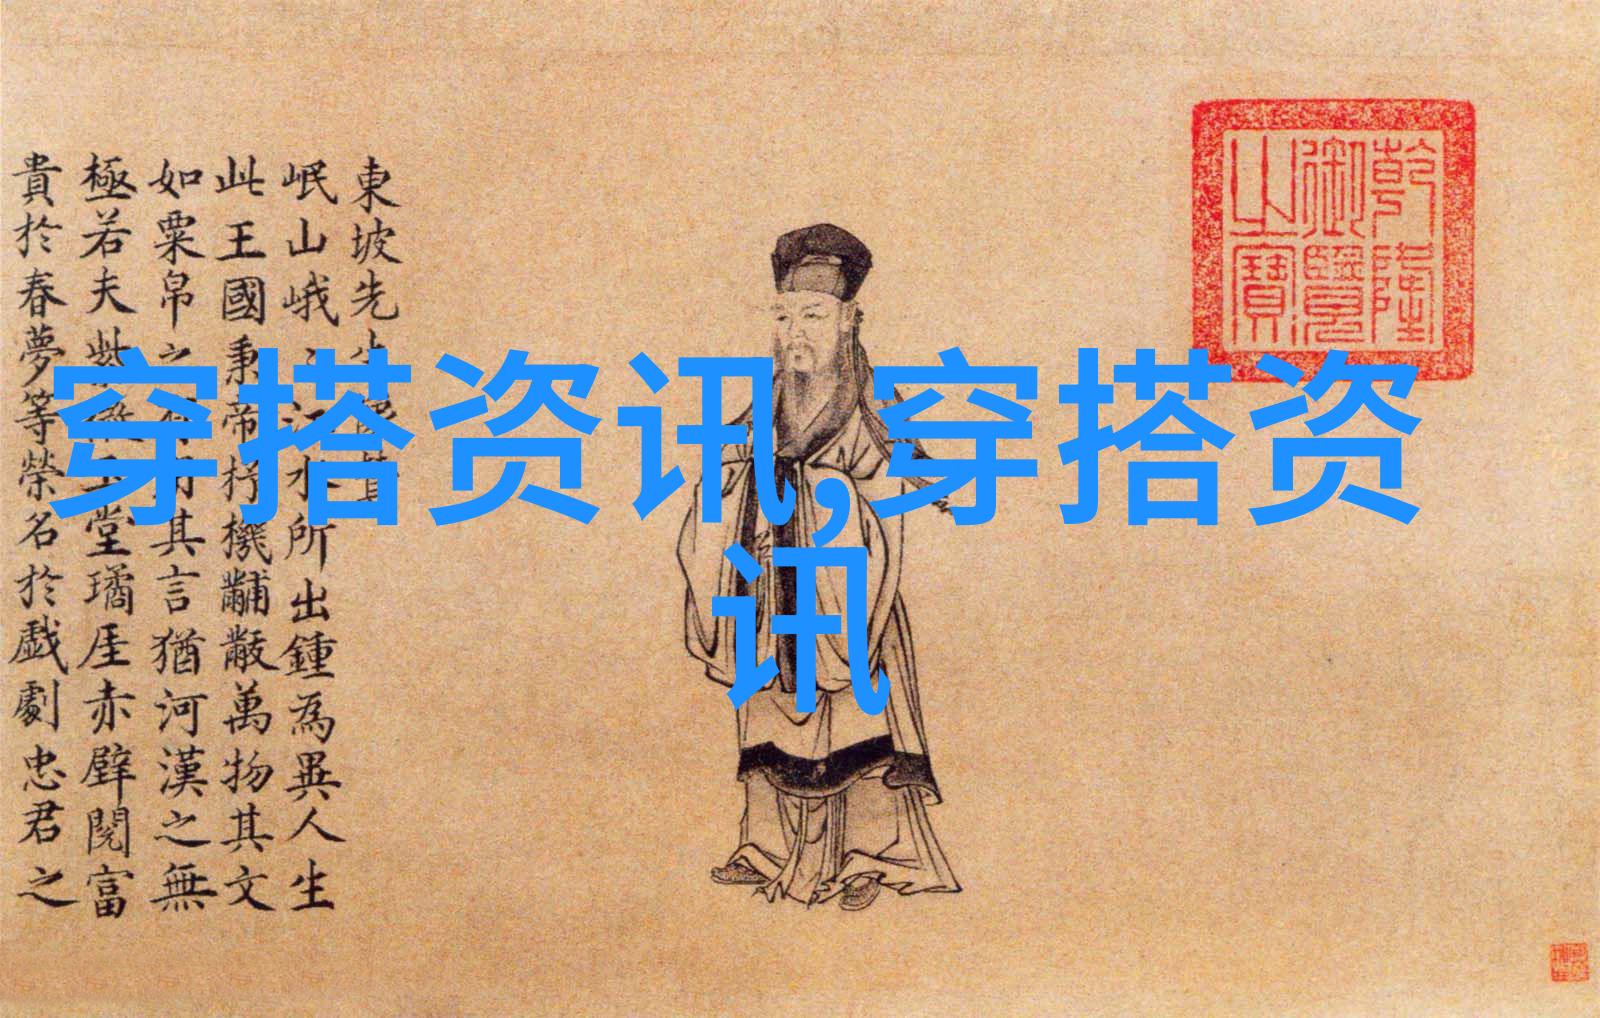 東坡先生像贊
岷山峨峨江水所出鍾為異人生
此王國秉帝杼機黼黻萬物其文
如粟帛之有用其言猶河漢之無
極若夫紫微玉堂璚厓赤壁閱富
貴於春夢等榮名於戲劇忠君之
乾隆
御覽
之寶
穿搭资讯,穿搭资
讯